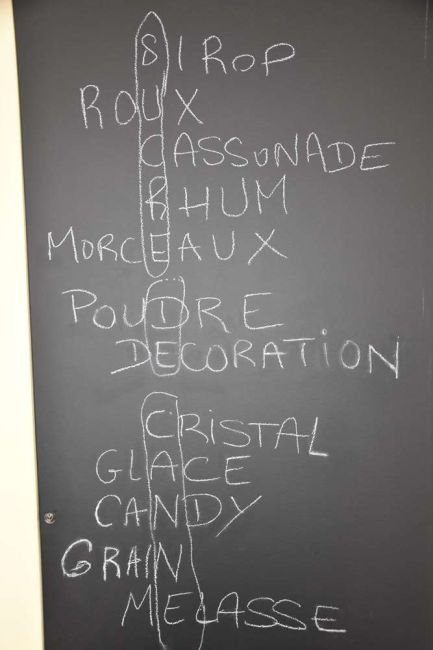 SIROP
ROUX
CASSONADE
RHUM
MORCEAUX
POUDRE
DECORATION
CRISTAL
GLACE
CANDY
GRAIN
MELASSE